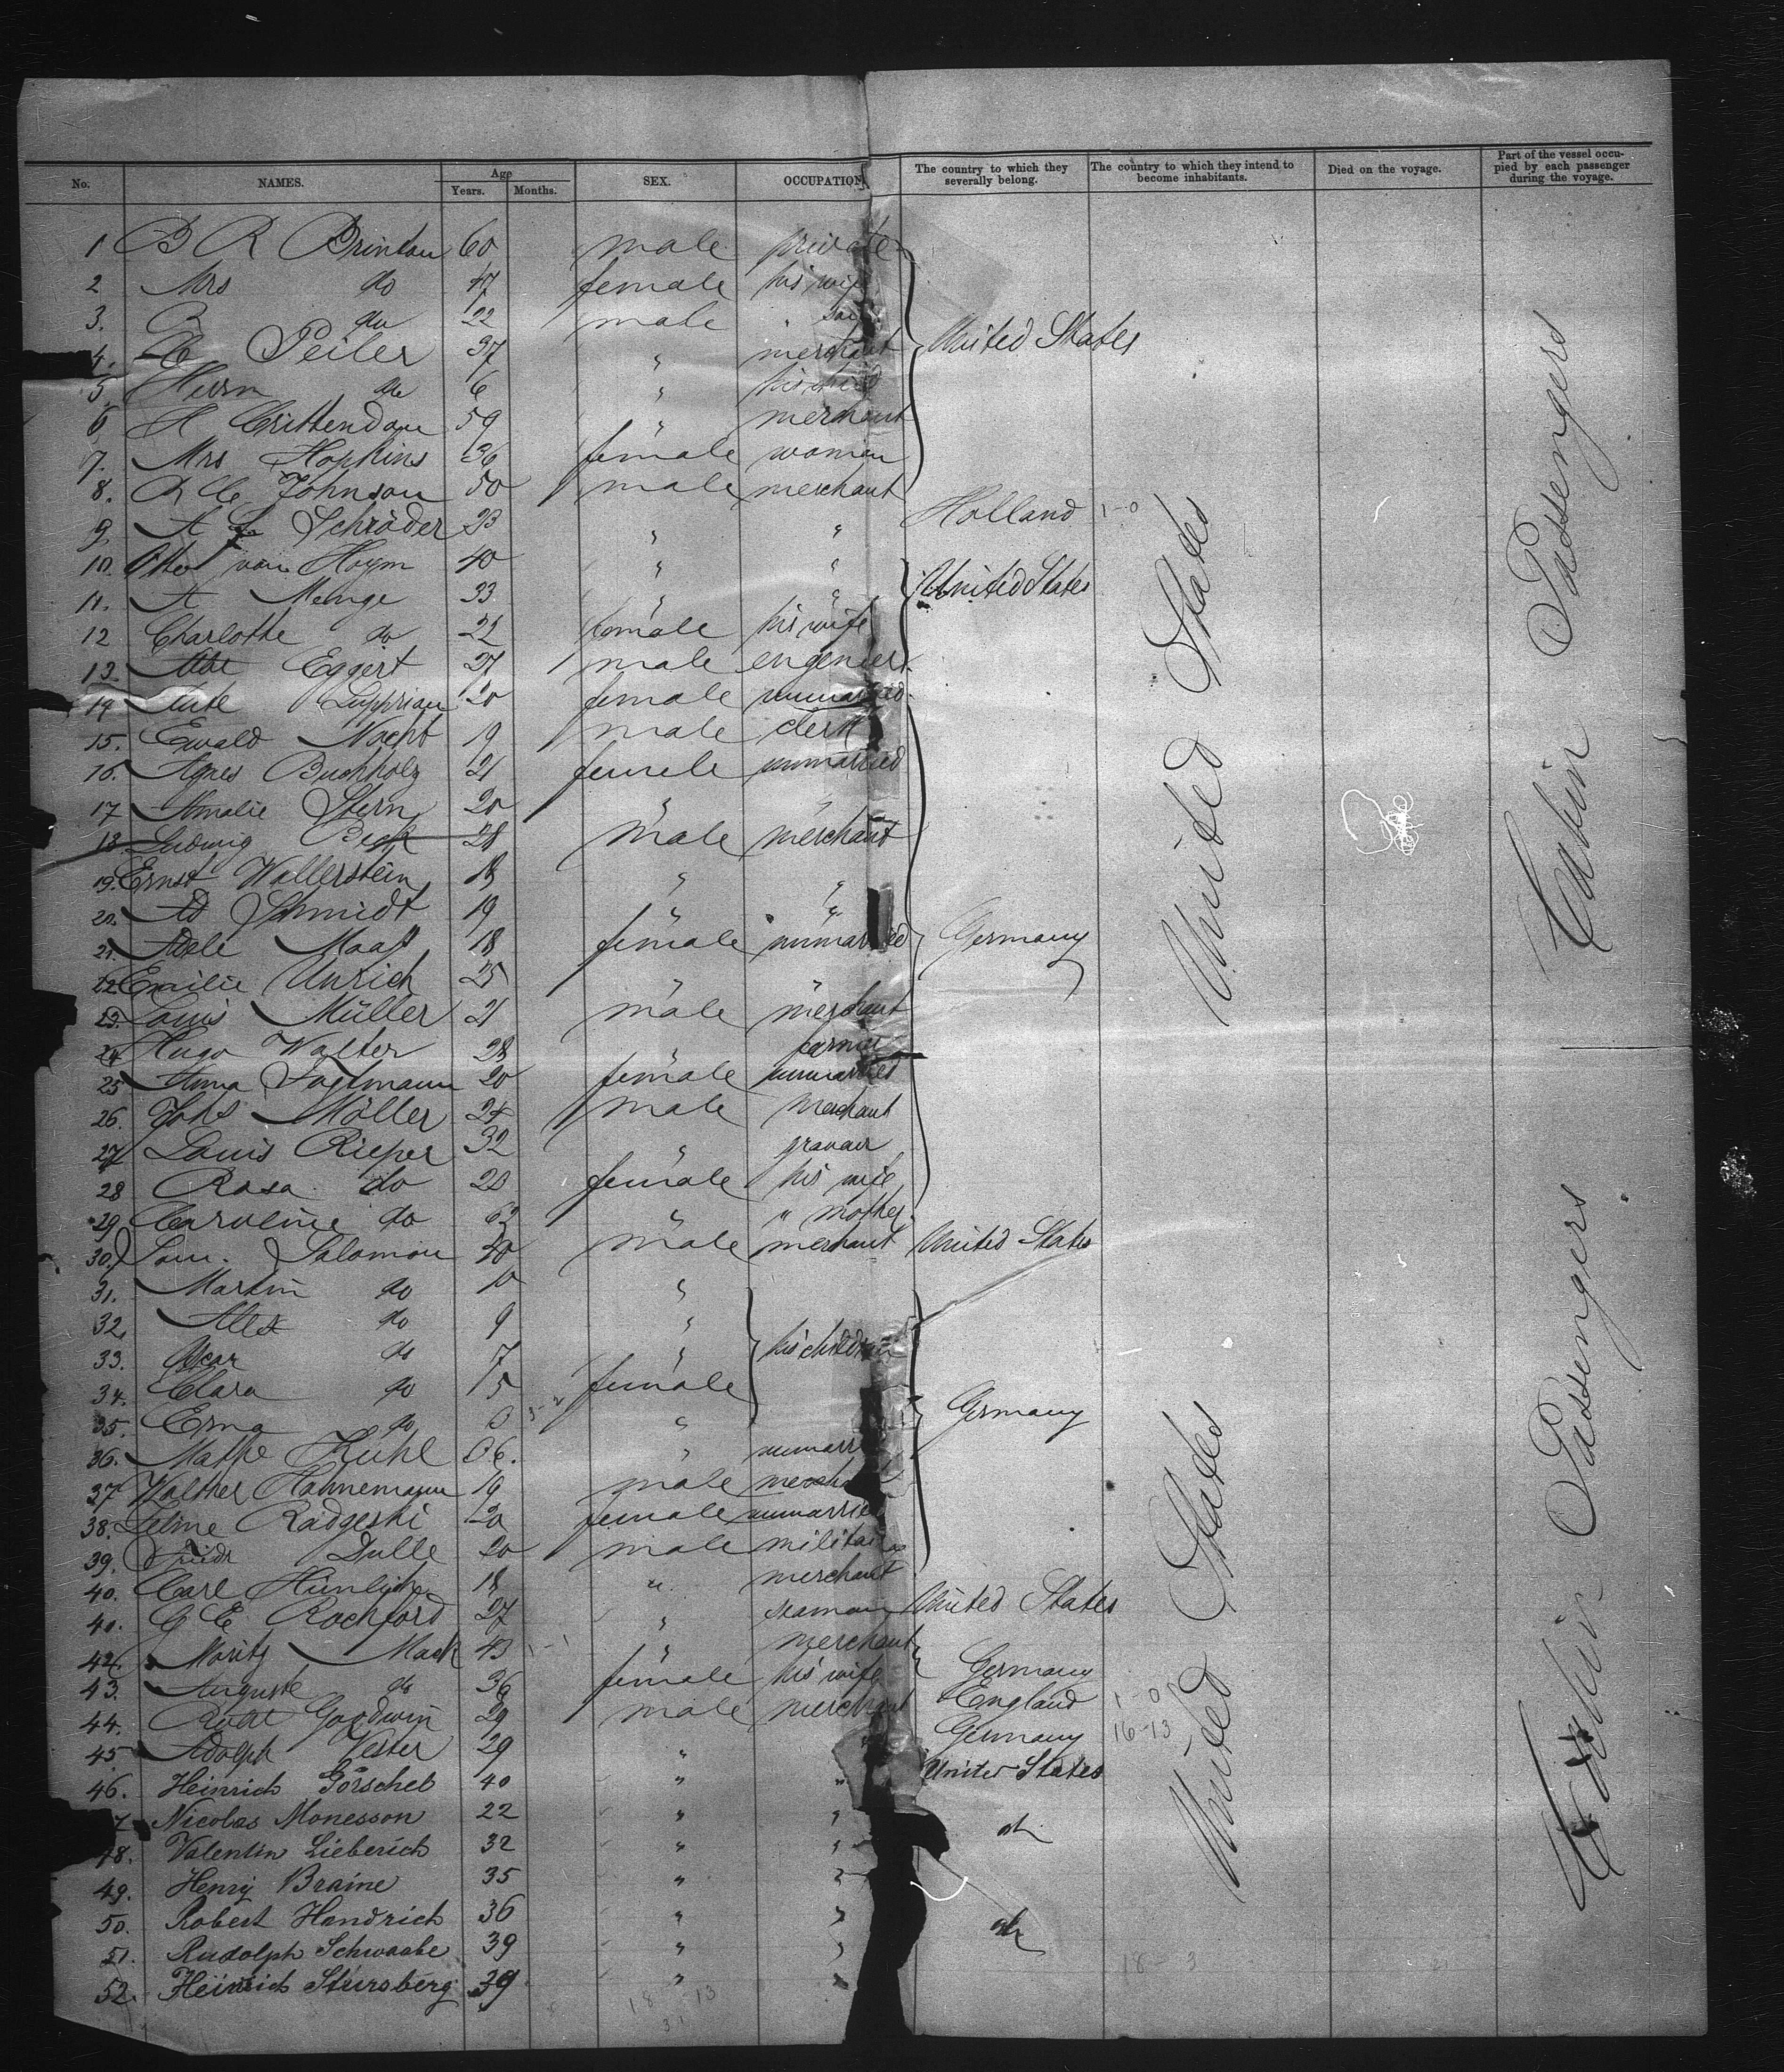 No. NAMES. Age Years. Months. SEX. OCCUPATION The country to which they severally belong. The country to which they intend to become inhabitants. Died on the voyage. Part of the vessel occupied by each passenger during the voyage.
1 B R Brinton 60 male private
2 Mrs do 47 female his wife
3. do 22 male " son
4. Peiler 37 " merchant United States
5. Herm do 6 " his child
6 H Crittendon 59 " merchant
7. Mrs Hopkins 36 female woman
8. Johnson 50 male merchant
9. A Schröder 23 " " Holland 1-0
10. Otto von Hoym 40 " "
11. A Menge 33 " " United States
12 Charlotte do 22 female his wife
13. Eggert 27 male engenier
14 20 female unmarried
15. Ewald Nocht 19 male clerk
16. Agnes Buchholz 21 female unmarried
17 Amalie Stern 20 " "
18 Ludwig Beck 28 male merchant
19. Ernst Wallerstein 18 " "
20. Ad Schmidt 19 " "
21. Adele Maaß 18 female unmarried Germany
22. Emilie Unrich 25 " "
23. Louis Müller 21 male merchant
24 Hugo Walter 28 " farmer
25 Anna 20 female unmarried
26. Johs Möller 24 male merchant
27 Louis Rieper 32 "
28 Rosa do 20 female his wife
29 Caroline do 63 " " mother
30. Salomon 40 male merchant United States
31. Martin do 10 "
32. Alex do 9 "
33. do 7 " his children
34. Clara do 5 female
35. Erna do 0 " Germany
36. Kuhl " unmarried
37 Walther Hahnemann 19 male merchant
38. Radgeski 20 female unmarried
39. Dulle 20 male
40. Carl 18 " merchant
40. G E Rochford 27 " seaman United States
42. Moritz Mack 43 1-1 " merchant
43. Auguste do 36 female his wife Germany
44. Robt Goodwin 29 male merchant England 1-0
45. Adolph 29 " Germany 16-13
46. Heinrich Görschel 40 " " United States
7. Nicolas Monesson 22 " "
48. Valentin Lieberich 32 " " do
49. Henry Braine 35 " "
50. Robert Handrich 36 " "
51. Rudolph Schwaabe 39 " " do
52. Heinrich Stursberg 39 " "
18 13
31
18-3
United States
United States
Cabin Passengers
Cabin Passengers